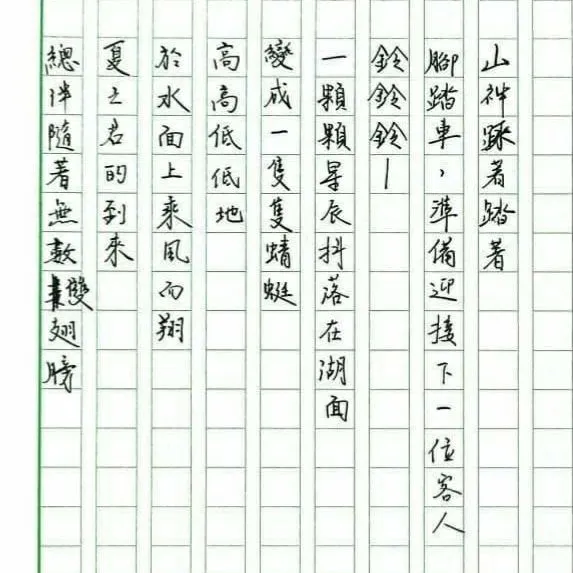 山神踩著踏著
腳踏車，準備迎接下一位客人
鈴鈴鈴—
一顆顆星辰抖落在湖面
變成一隻隻蜻蜓
高高低低地
於水面上乘風而翔
夏之君的到來
總伴隨著無數雙翅膀